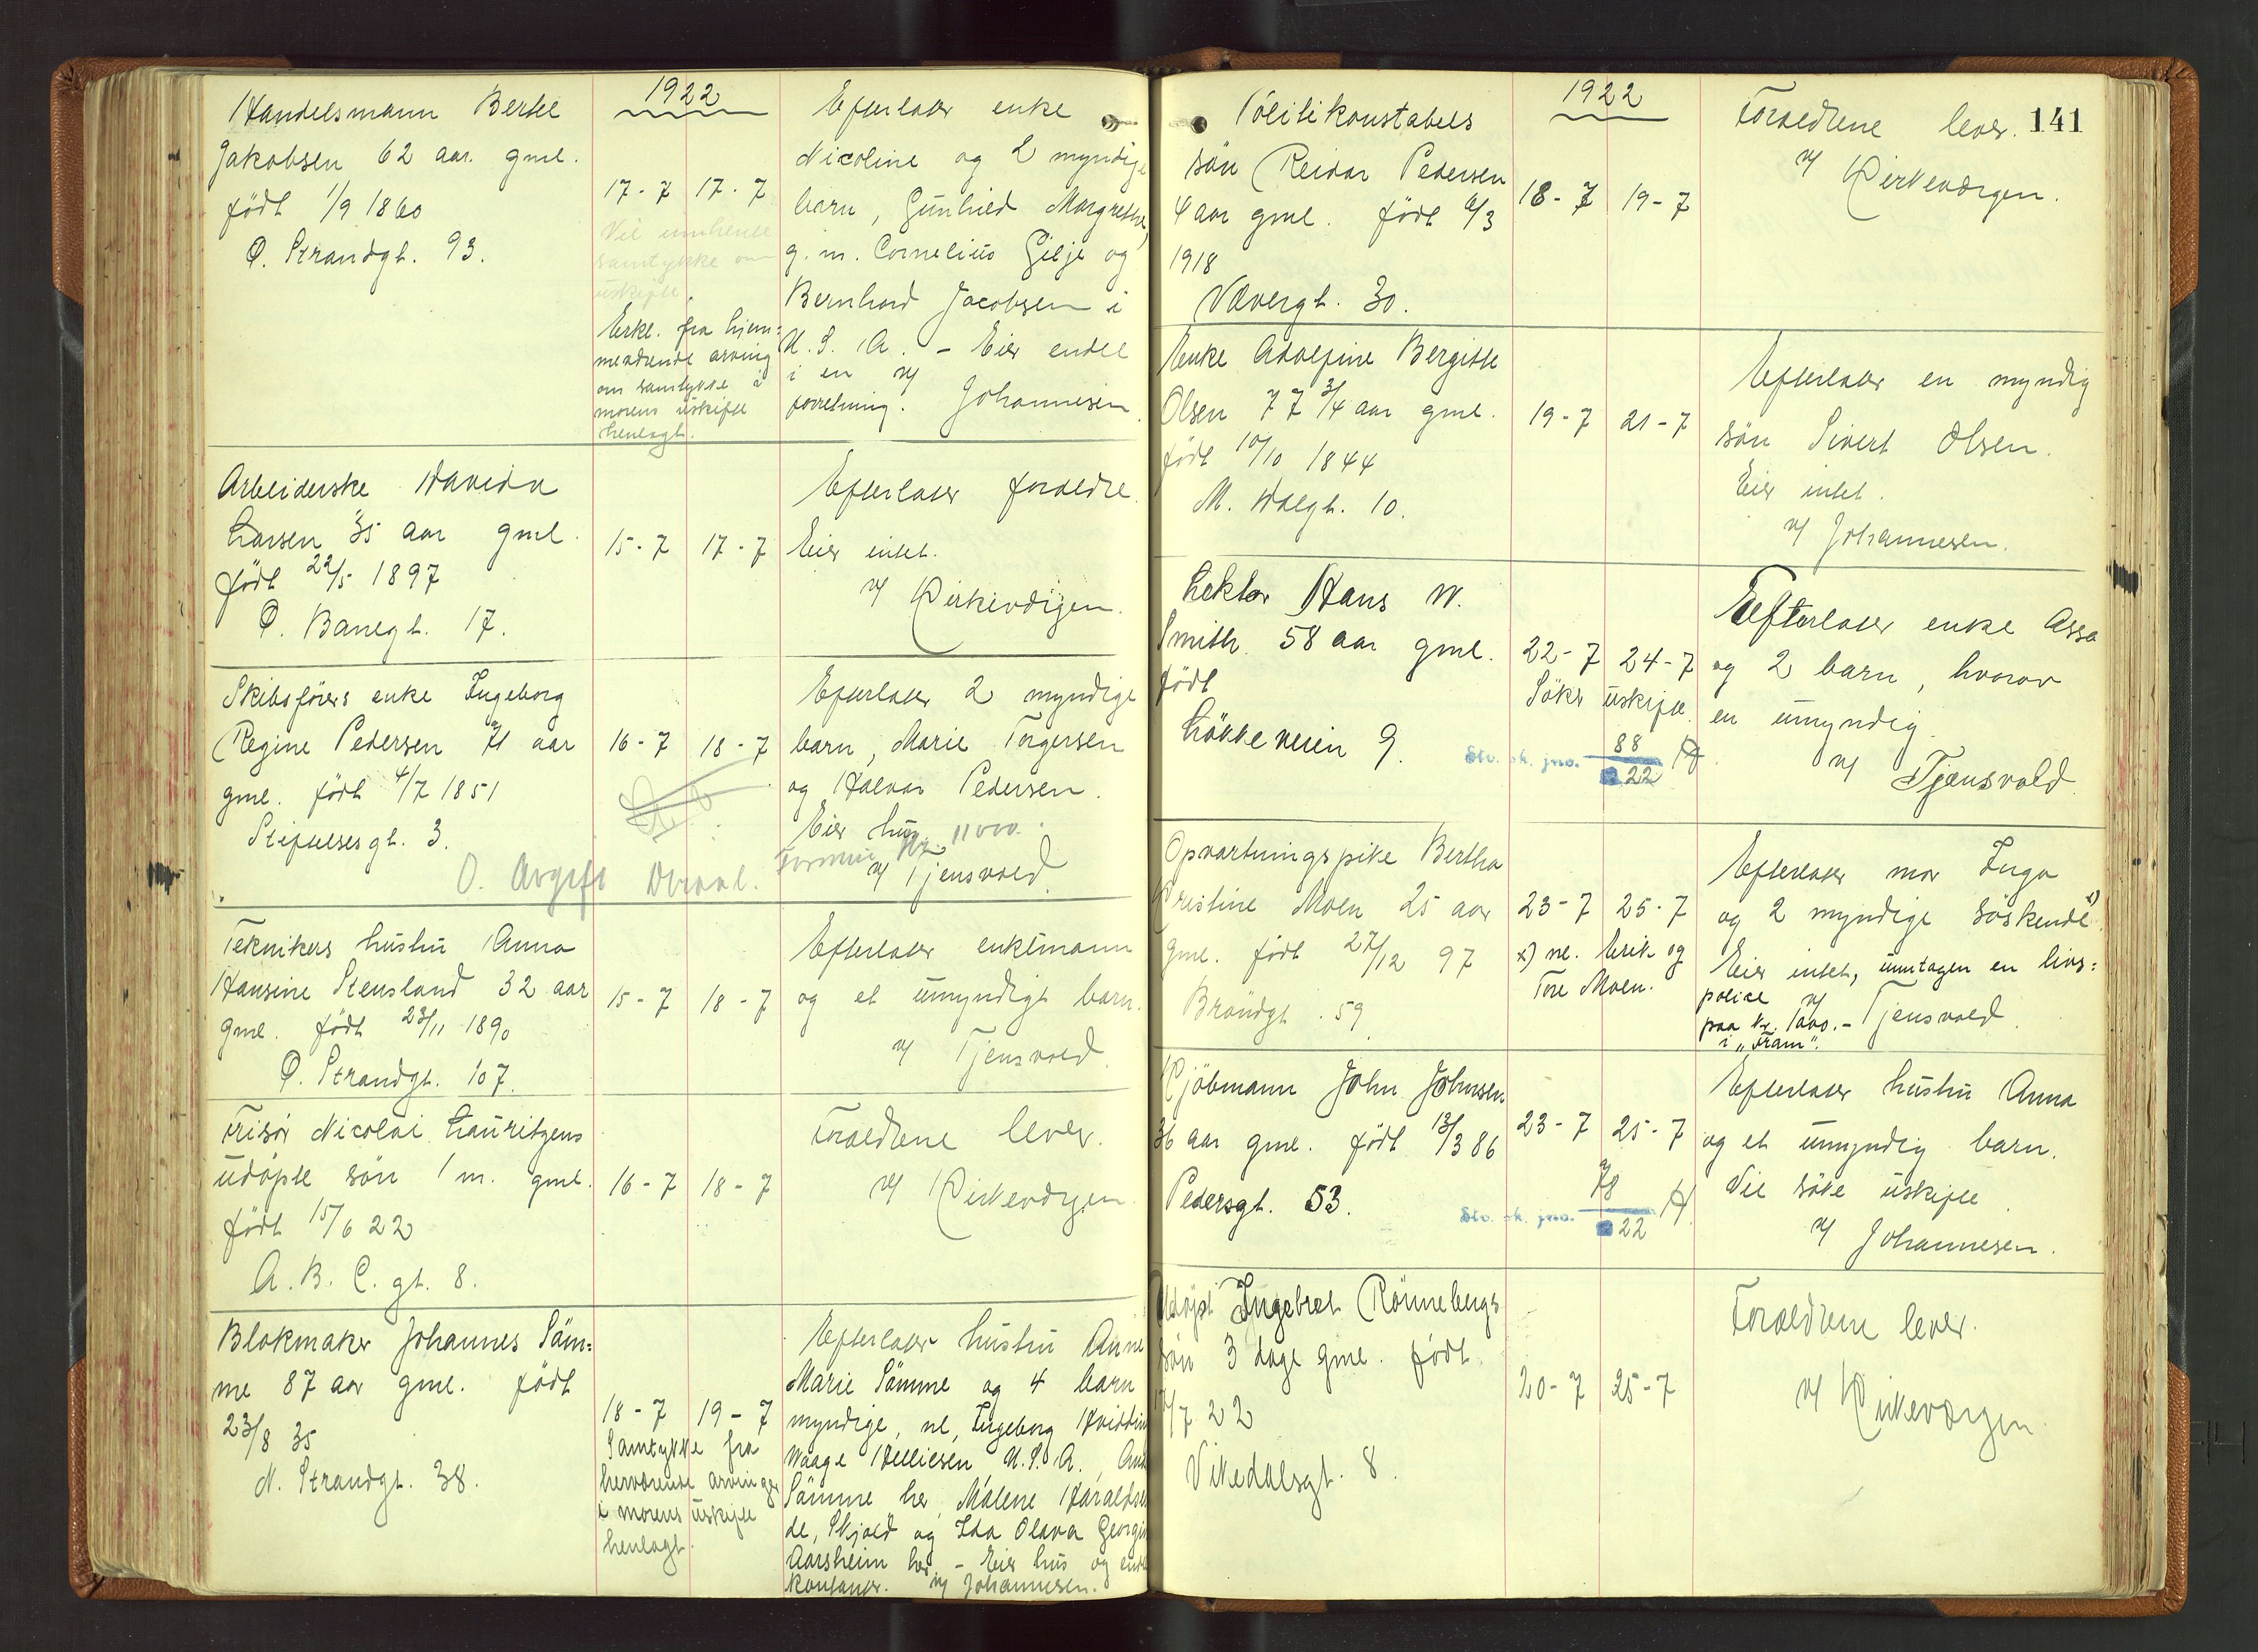 1922
Handelsmann Bertel
Jakobsen 62 aar. gml.
født 1/9 1860
Ø. Strandgt. 93.
17-7 17-7
Vil innhente
samtykke om
uskifte.
Erkl. fra hjem=
meværende arving
om samtykke i
morens uskifte
henlagt.
Efterlater enke
Nicoline og 2 myndige
barn, Gunhild Margrethe,
g.m. Cornelius Gilje og
Bernhard Jacobsen i
U.S.A. - Eier endel
i en
forretning. v/ Johannesen.
Arbeiderske Davida
Larsen 35 aar gml.
født 22/5 1897
Ø. Banegt. 17.
15-7 17-7
Efterlater forældre.
Eier intet.
v/ Kirkeværgen.
Skibsførers enke Ingeborg
Regine Pedersen 71 aar
gml. født 4/7 1851
Stiftelsesgt. 3.
16-7 18-7
Efterlater 2 myndige
barn, Marie Torgersen
og Halvar Pedersen.
Eier hus.
Formue 11000.
v/ Tjensvold.
O. Avgift
Teknikers hustru Anna
Hansine Stensland 32 aar
gml. født 23/11 1890
Ø. Strandgt. 107.
15-7 18-7
Efterlater enkemann
og et umyndigt barn.
v/ Tjensvold.
Frisør Nicolai Lauritzens
udøpte søn 1 m. gml.
født 15/6 22
A.B.C. gt. 8.
16-7 18-7
Forældrene lever.
v/ Kirkeværgen
Blokmaker Johannes Søm=
me 87 aar gml. født
23/8 35
N. Strandgt. 38.
18-7 19-7
Samtykke fra
herværende arvinger
i morens uskifte
henlagt.
Efterlater hustru Anne
Marie Sømme og 4 barn
myndige, nl, Ingeborg
Waage U.S.A.,
Sømme her, Malene
de, Skjold og Ida Olava
Aarsheim her. - Eier hus og
kontanter. v/ Johannesen.
141
1922
Politikonstabels
søn Reidar Pedersen
4 aar gml. født 6/3
1918
Vævergt. 30.
18-7 19-7
Forældrene lever.
v/ Kirkeværgen.
Enke Adolfine Bergitte
Olsen 77 3/4 aar gml.
født 10/10 1844
M. Dalgt. 10.
19-7 21-7
Efterlater en myndig
søn Sivert Olsen.
Eier intet.
v/ Johannesen.
Lektor Hans W.
Smith. 58 aar gml.
født
Løkkeveien 9.
22-7 24-7
Søker uskifte.
Stv. sk. jno. 88/22
Efterlater enke Assa
og 2 barn, hvorav
en umyndig.
v/ Tjensvold.
Opvartningspike Bertha
Kristine Moen 25 aar
gml. født 27/12 97
Brøndgt. 59
23-7 25-7
x) nl. Erik og
Tore Moen.
Efterlater mor Inga
og 2 myndige søskende x)
Eier intet, unntagen en livs=
police
paa kr. 1000.- v/ Tjensvold.
i "Fram".
Kjøbmann John Johnsen
36 aar gml. født 13/3 86
Pedersgt. 53.
23-7 25-7
Stv. sk. jno. 78/22
Efterlater hustru Anna
og et umyndig barn.
Vil søke uskifte
v/ Johannesen.
Udøpt Ingebret Rønnebergs
søn 3 dage gml. født
17/7 22
Vikedalsgt. 8.
20-7 25-7
Forældrene lever.
v/ Kirkeværgen